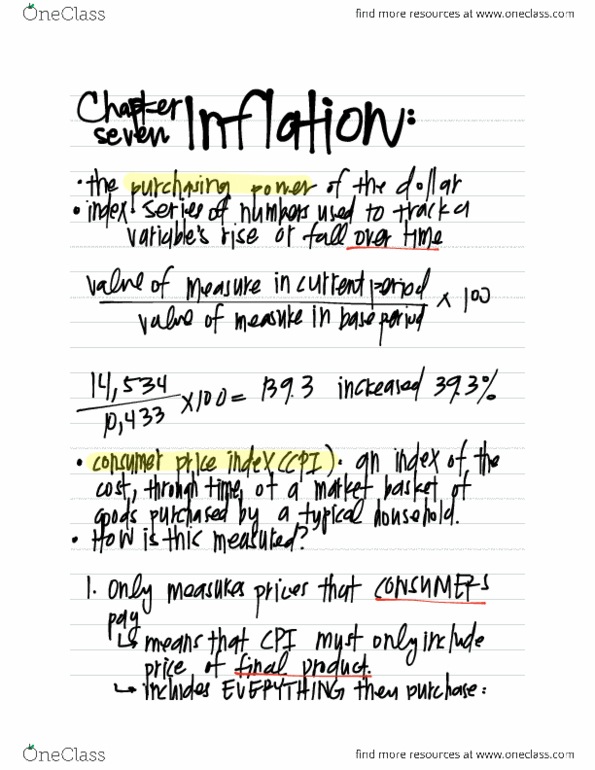 OneClass
find more resources at www.oneclass.com
Chapter seven Inflation:
• the purchasing power of the dollar
• index• series of numbers used to track a
variable's rise or fall over time
value of measure in current period
value of measure in base period × 100
14,534
10,433 ×100 = 139.3 increased 39.3%
• consumer price index (CPI)• an index of the
cost, through time, of a market basket of
goods purchased by a typical household.
• How is this measured?
1. Only measures prices that CONSUMERS
pay
↳ means that CPI must only include
price of final product.
↳ includes EVERYTHING they purchase:
OneClass
find more resources at www.oneclass.com